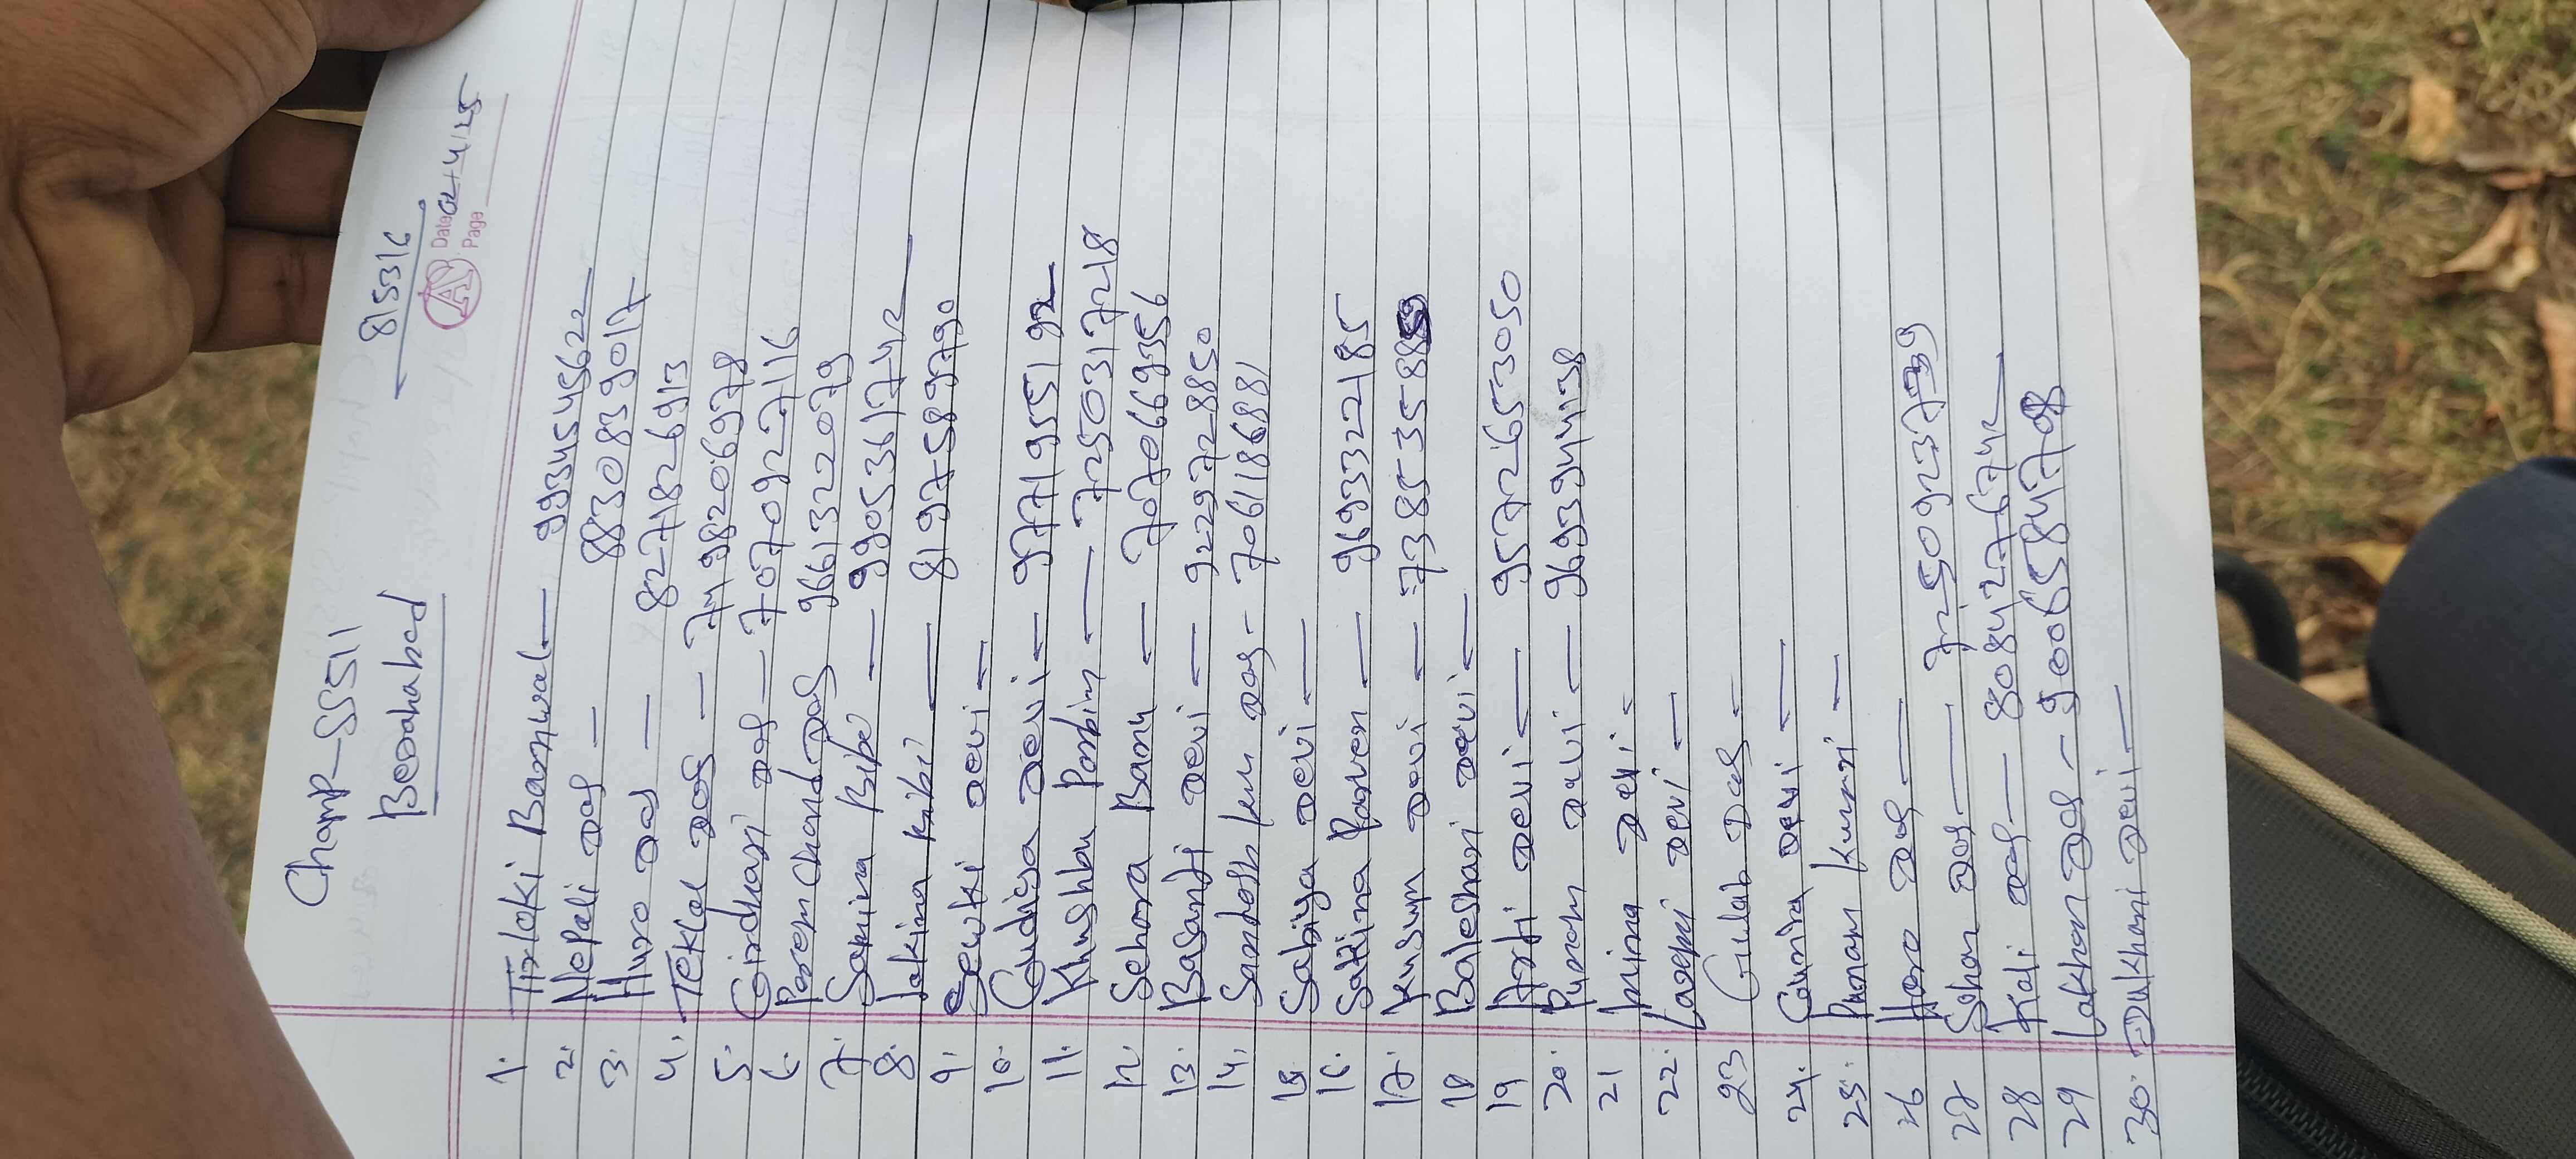 Champ-5511
Berahabad
815316
Date 02/4/25
Page
1. Tirloki Barnwal - 9934545622
2. Nepali Das - 8830839017
3. Huro Das - 8271826913
4. Teklal Das - 7498206978
5. Girdhari Das - 7070927116
6. Paremchand Das 9661322079
7. Samina Bibi - 9905361742
8. Jakina bibi - 8197589790
9. Sewki Devi -
10. Gudiya Devi - 9771955192
11. Khushbu Parbin - 7250317218
12. Sehora Banu - 7070669356
13. Basanti Devi - 9229728850
14. Santosh kru Das - 7061186881
15. Sabiya Devi -
16. Sakina Parven - 9693322185
17. Kusum Devi - 7385358859
18 Baleshari Devi -
19 Arti Devi - 9572653050
20. Punam Devi - 9693944138
21 Imina Devi -
22. Laxmi Devi -
23 Gulab Das -
24. Gunita Devi -
25. Punam Kumri -
26 Horo Das -
27 Sohan Das - 7250923739
28 Kali Das - 8084277674
29 Lakhan Das - 9006584708
30. Dukhani Devi -